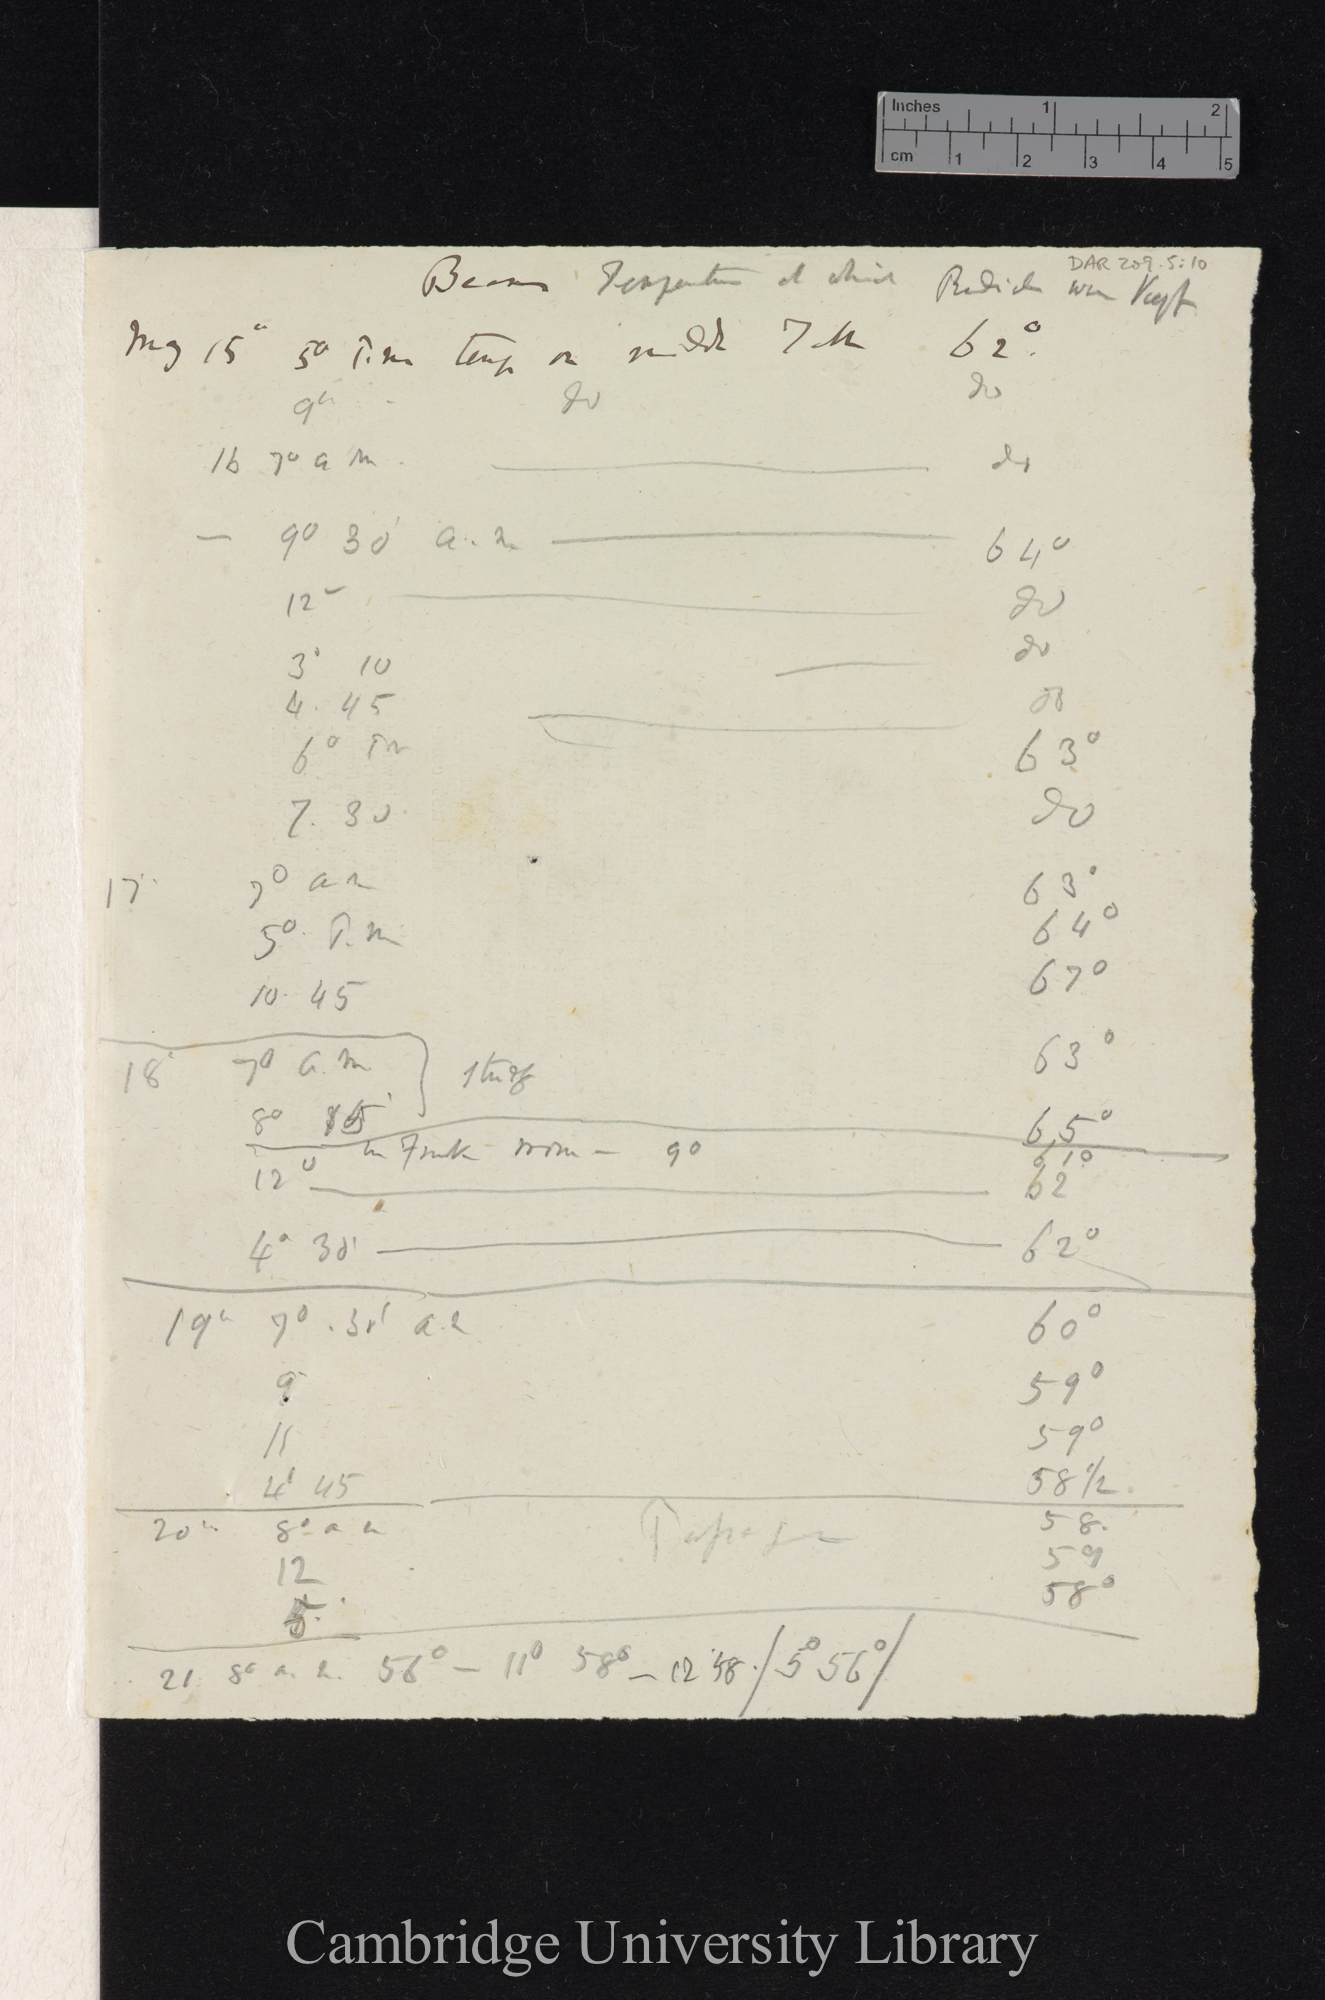 Inches 1 2
cm 1 2 3 4 5
DAR 209.5:10
Beans Temperature at which Radicles were Kept
May 15° 5° P.m temp on middle 62°.
9h - do do
16 7° a m. do
— 9° 30' a.m 64°
12° do
3' 10 do
4. 45 do
6° Pm 63°
7. 30 do
17 7° a m 63°
5° P.m 64°
10. 45 67°
18 7° a.m 63°
study
8° 15' 65°
in Frank room — 9° 61°
12° 62
4° 30' 62°
19th 7°.30' a.m 60°
9 59°
11 59°
4' 45 58 1/2.
20th 8° a m 58.
12 59
5. 58°
21 8° a. m. 56° — 11° 58° — 12 58./5° 56°/
Cambridge University Library